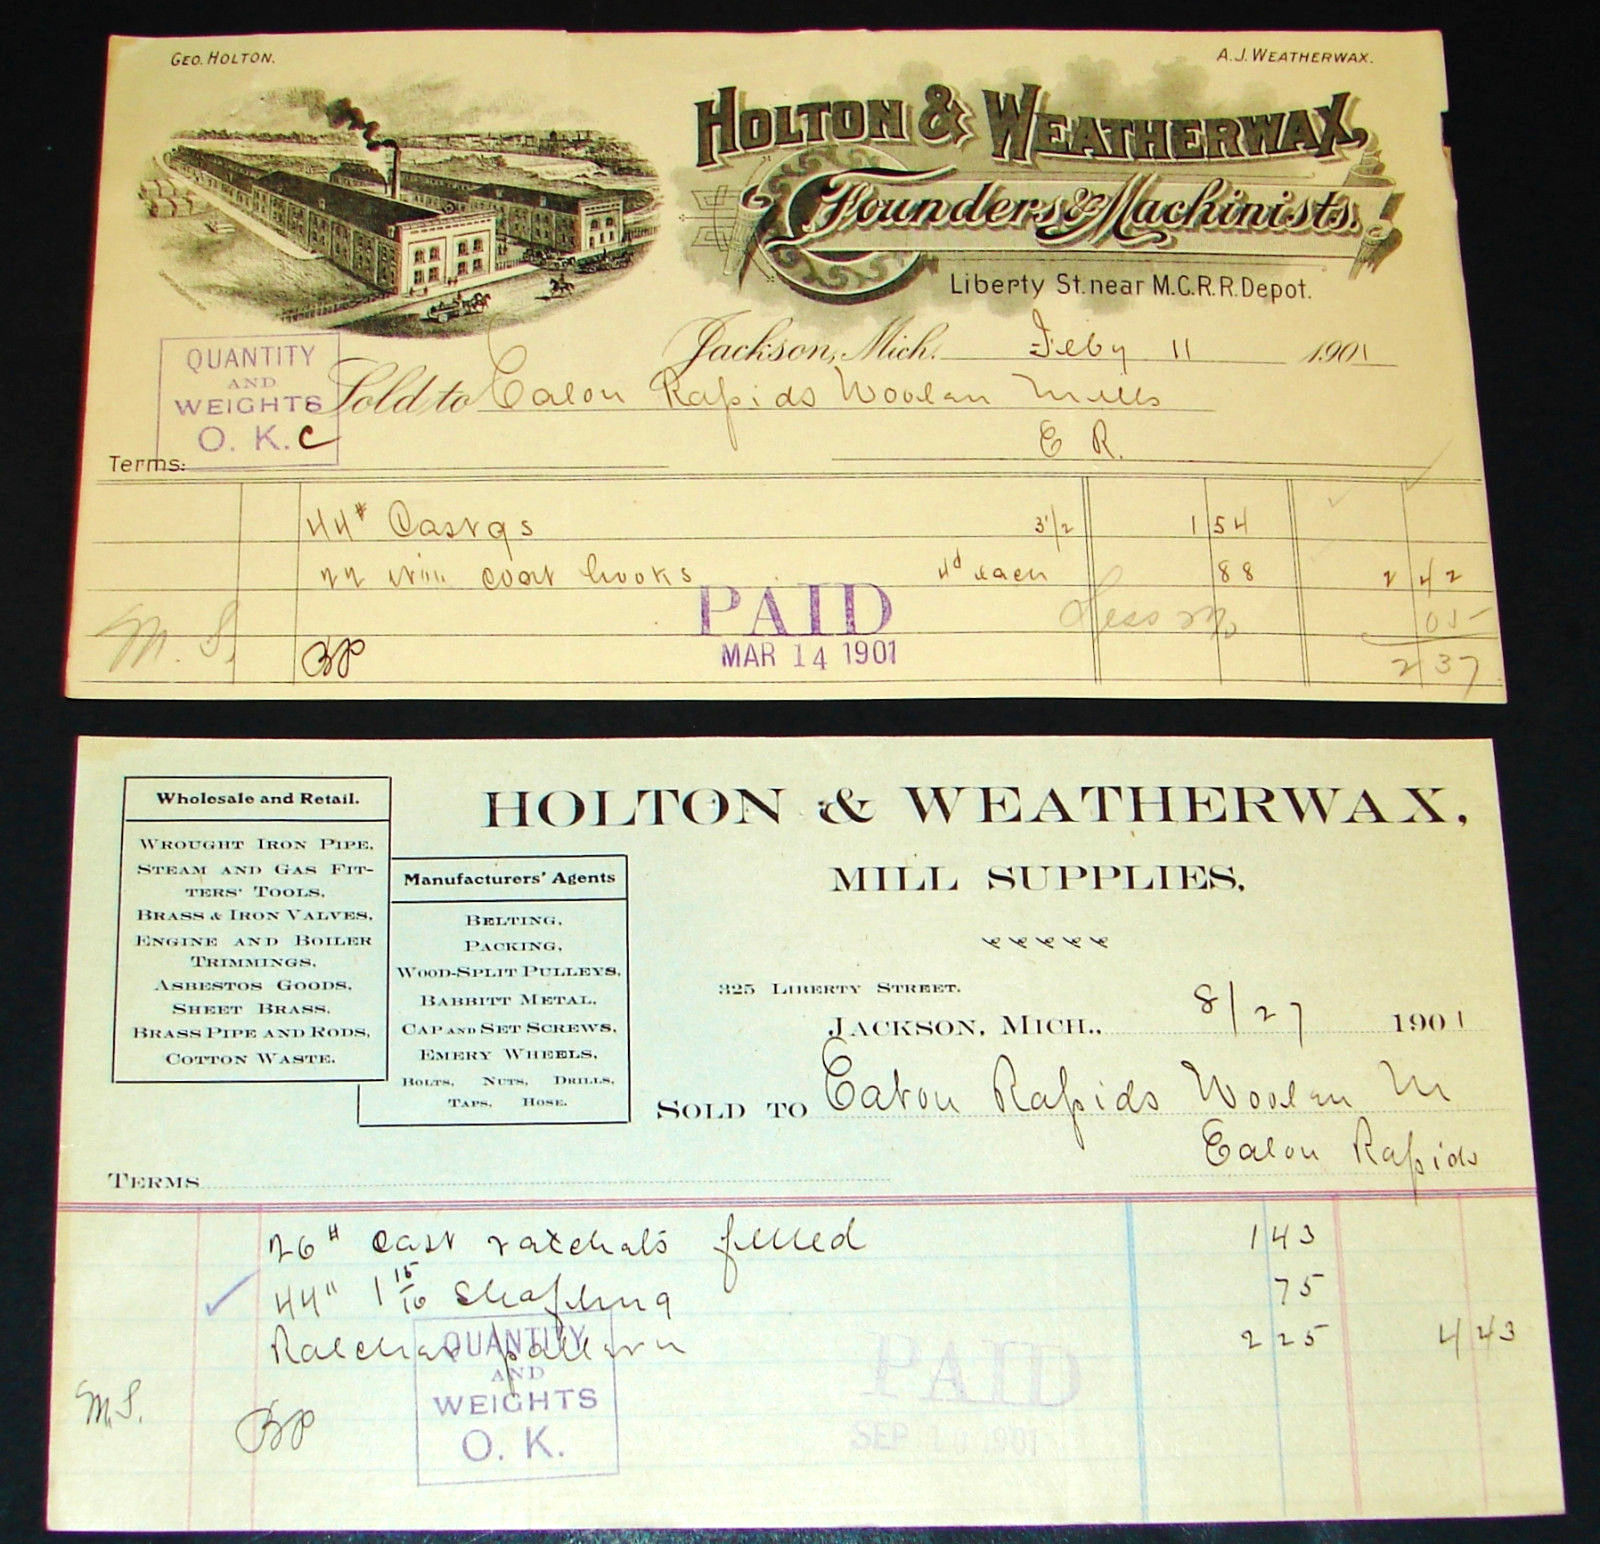 GEO. HOLTON.
A. J. WEATHERWAX.
HOLTON & WEATHERWAX,
Founders & Machinists.
Liberty St. near M.C.R.R. Depot.
Jackson, Mich. Feby 11 1901
QUANTITY
AND
WEIGHTS
O. K. C
Sold to Eaton Rapids Woolen Mills
E R.
Terms:
44# Castgs 3 1/2 1 54
22 coat hooks 4d each 88 2 42
PAID
MAR 14 1901
Less 2% 05
M. S. BP 2 37
HOLTON & WEATHERWAX,
MILL SUPPLIES,
325 LIBERTY STREET.
JACKSON, MICH., 8/27 1901
Wholesale and Retail.
WROUGHT IRON PIPE,
STEAM AND GAS FIT-
TERS' TOOLS,
BRASS & IRON VALVES,
ENGINE AND BOILER
TRIMMINGS,
ASBESTOS GOODS,
SHEET BRASS,
BRASS PIPE AND RODS,
COTTON WASTE.
Manufacturers' Agents
BELTING,
PACKING,
WOOD-SPLIT PULLEYS,
BABBITT METAL,
CAP AND SET SCREWS,
EMERY WHEELS,
BOLTS, NUTS, DRILLS,
TAPS, HOSE.
SOLD TO Eaton Rapids Woolen M
Eaton Rapids
TERMS
26# cast ratchets filled 1 43
44" 1 15/16 Shafting 75
Ratchet pattern 2 25 4 43
QUANTITY
AND
WEIGHTS
O. K.
PAID
SEP 10 1901
M. S.
BP